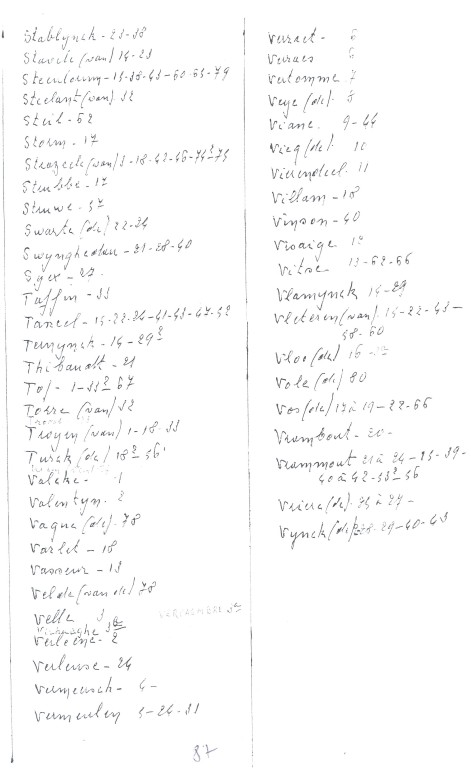 Stablynck - 23-38
Stavele (van) 14-23
Steenloum - 13-38-43-60-63-79
Steelant (van) 32
Steil - 52
Storm - 17
Strazeele (van) 3-18-42-46-74²-75
Stubbe - 17
Struwe - 37
Swarte (de) 22-24
Swynghedau - 21-28-40
Syex - 27.
Taffin - 33
Tancel - 15-22-24-41-43-47-52
Ternynck - 14-29²
Thibault - 21
Tof - 1-33² 67
Torre (van) 32
Troyen (van) 1-18-33
Turck (de) 18²-36
Valcke - 1
Valentyn. 2
Vaque (de). 78
Varlet - 18
Vasseur - 13
Velde (van de) 78
Velle 3
VERCAMBERE 3
Verleene - 2
Verleuse - 24
Vermeersch - 4 -
Vermeulen 5-24-31
Verract - 6
Verraes 6
Vertomme 7
Veye (de). 8
Viane. 9-44
Vicq (de). 10
Vierendeel. 11
Villam - 18
Vinson - 40
Visaige 12
Vitse 13-62-66
Vlamynck 14-29
Vleteren (van). 15-22-43-
58-60
Vloo (de) 16
Vole (de) 80
Vos (de) 17 à 19-22-66
Vrambout - 20 -
Vrammout 21 à 24-25-39-
40 à 42-53²-56
Vriere (de). 25 à 27 -
Vynck (de) 28-29-40-43
87